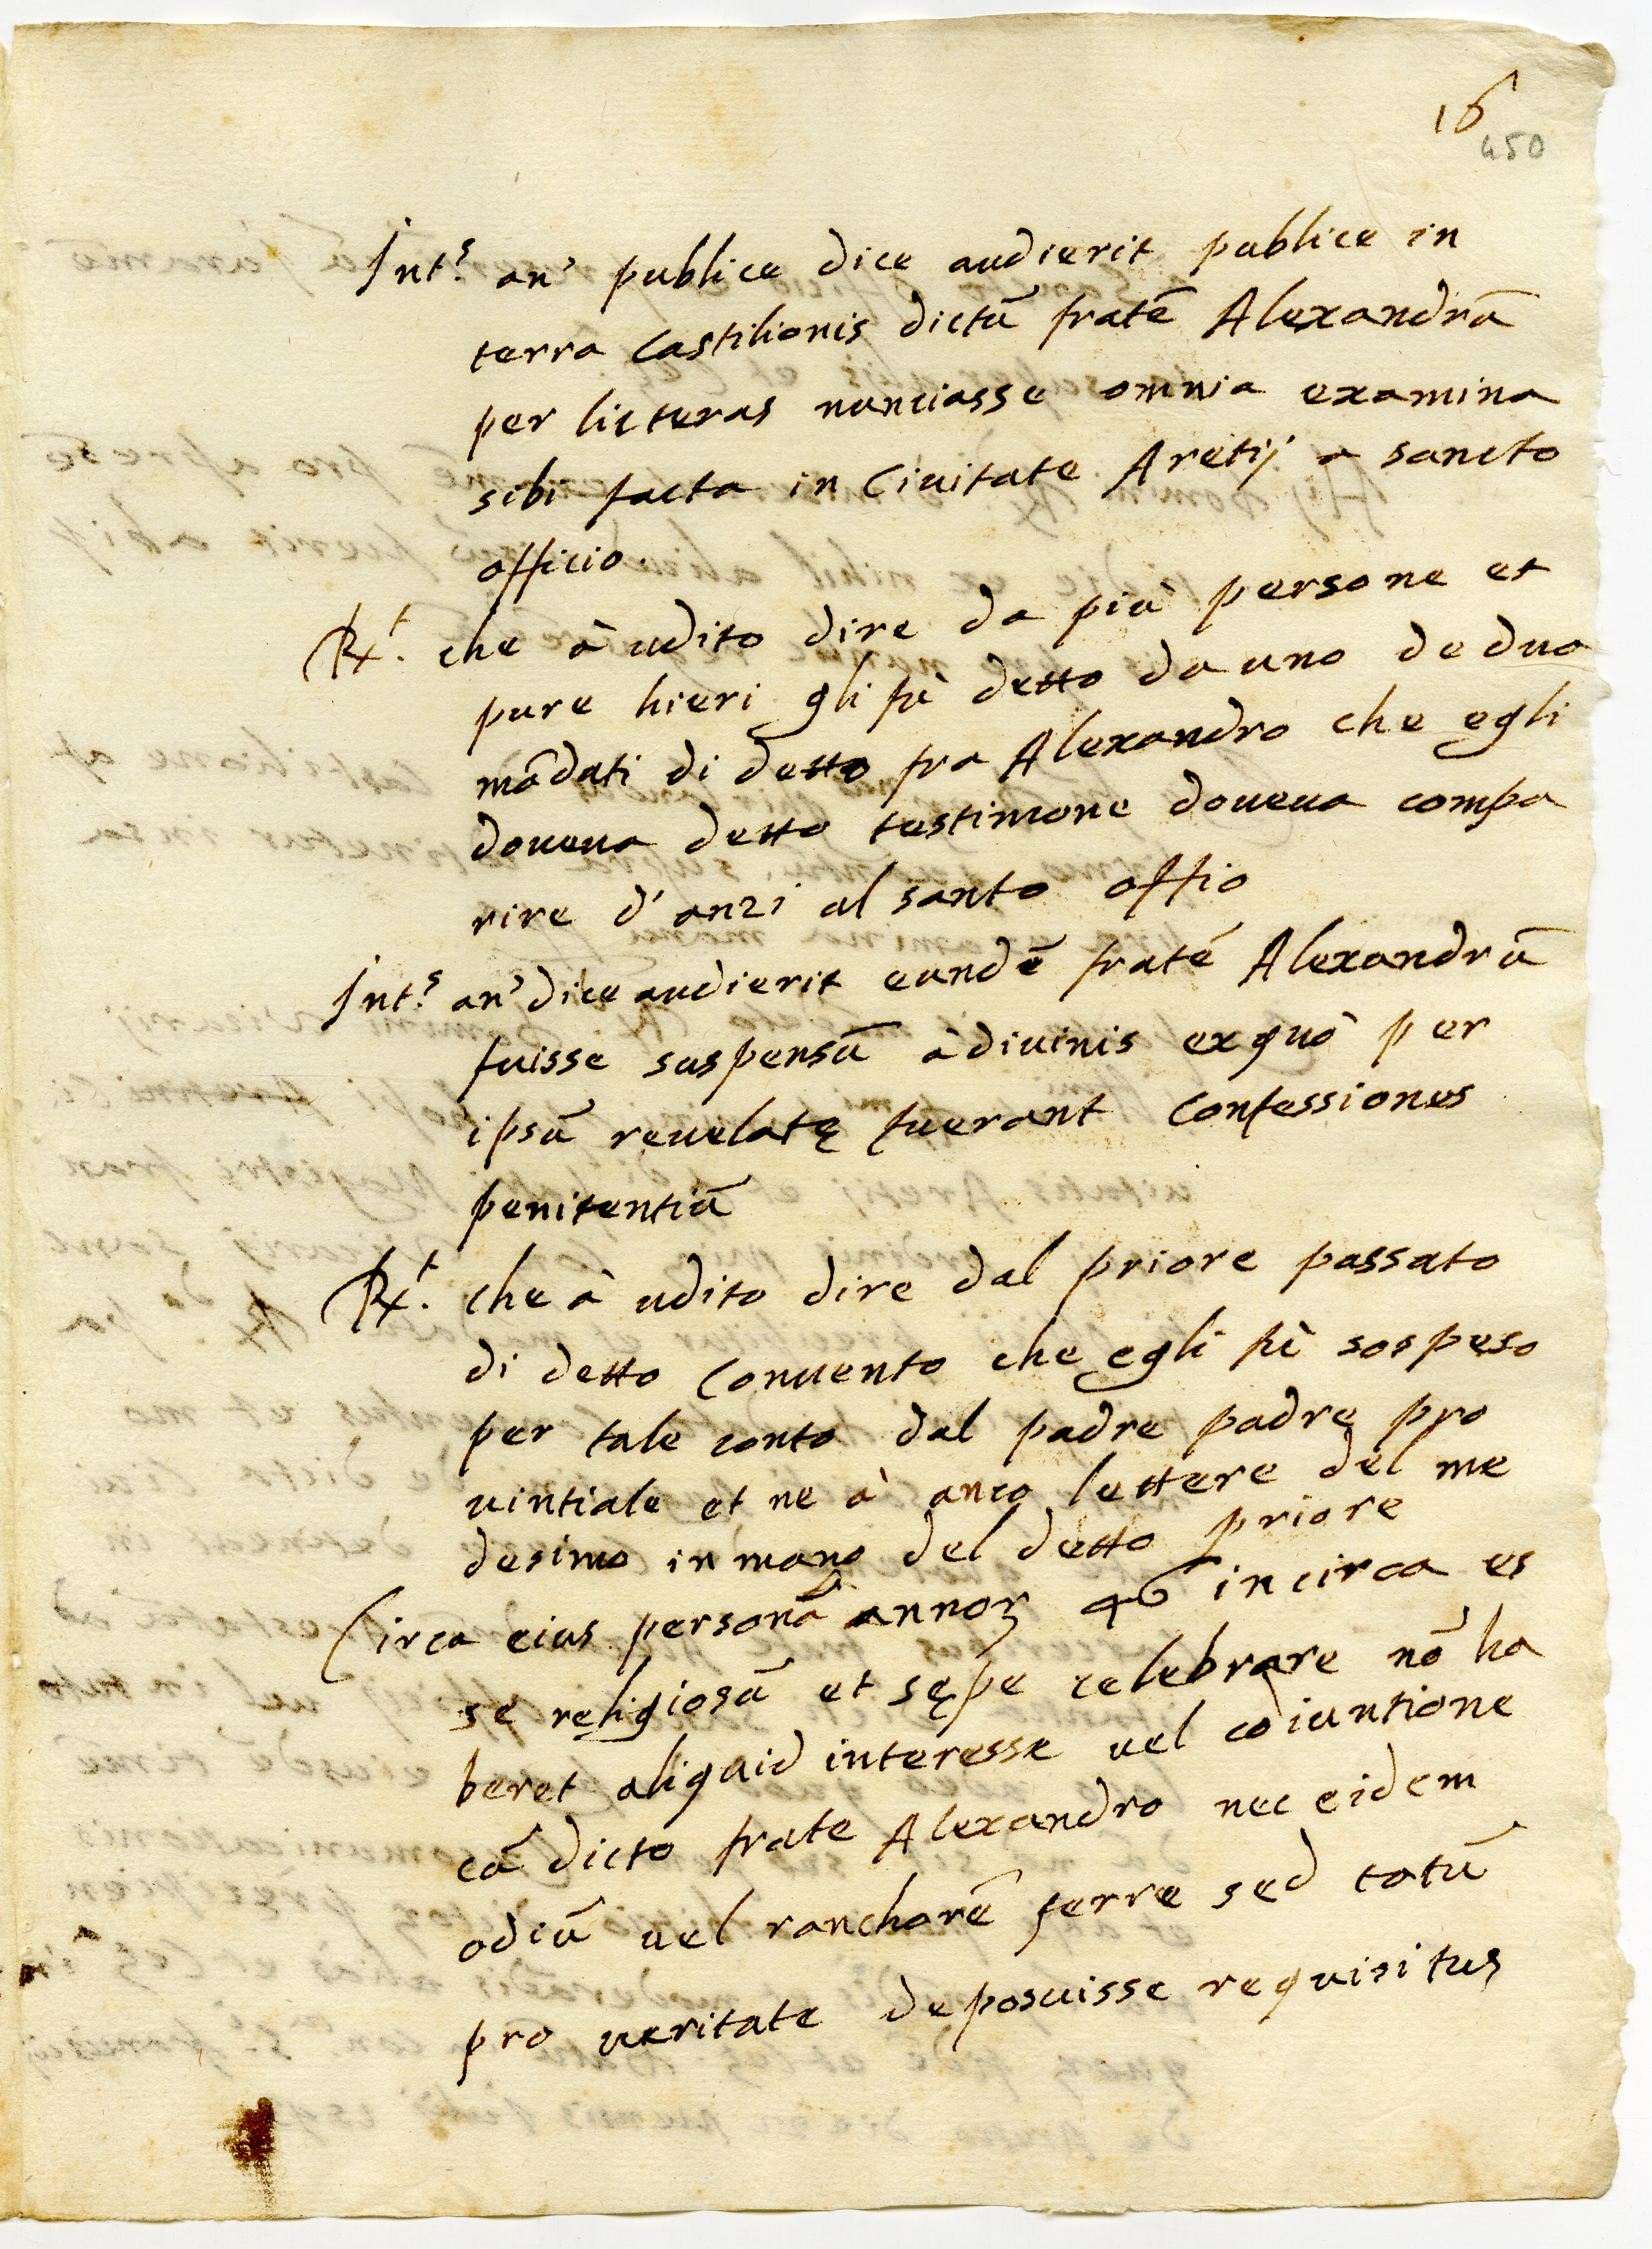 16
450
Int.s an' publice dice audierit publice in
terra Castilionis dictū fratē Alexandrū
per licteras nunciasse omnia examina
sibi facta in Ciuitate Aretij a sancto
officio.
Rx.t che à udito dire da più persone et
pure hieri gli fù detto da uno de dua
mādati di detto fra Alexandro che egli
doueua detto testimone doueua compa
rire d'anzi al santo offio
Int.s an' dice audierit eundē fratē Alexandrū
fuisse suspensū à diuinis ex quo per
ipsū reuelatę fuerant confessiones
penitentiū
Rx.t che à udito dire dal priore passato
di detto Conuento che egli fù sospeso
per tale conto dal padre padre pro
uintiale et ne à anco lettere del me
desimo in mano del detto priore
Circa eius personā annoꝝ 46 incirca es
se religiosū et sępe celebrare nō ha
beret aliquid interesse uel cōiuntione
cū dicto frate Alexandro nec eidem
odiū uel ranchorē ferre sed totū
pro ueritate deposuisse requisitus